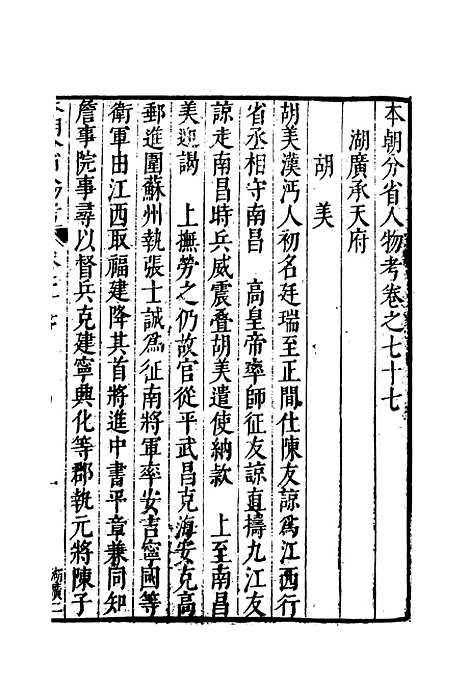 本朝分省人物考卷之七十七
湖廣承天府
胡美
胡美漢沔人初名廷瑞至正間仕陳友諒為江西行
省丞相守南昌　高皇帝率師征友諒直擣九江友
諒走南昌時兵威震疊胡美遣使納款　上至南昌
美迎謁　上撫勞之仍故官從平武昌克海安克高
郵進圍蘇州執張士誠為征南將軍率安吉寧國等
衛軍由江西取福建降其首將進中書平章兼同知
詹事院事尋以督兵克建寧興化等郡執元將陳子
湖廣二